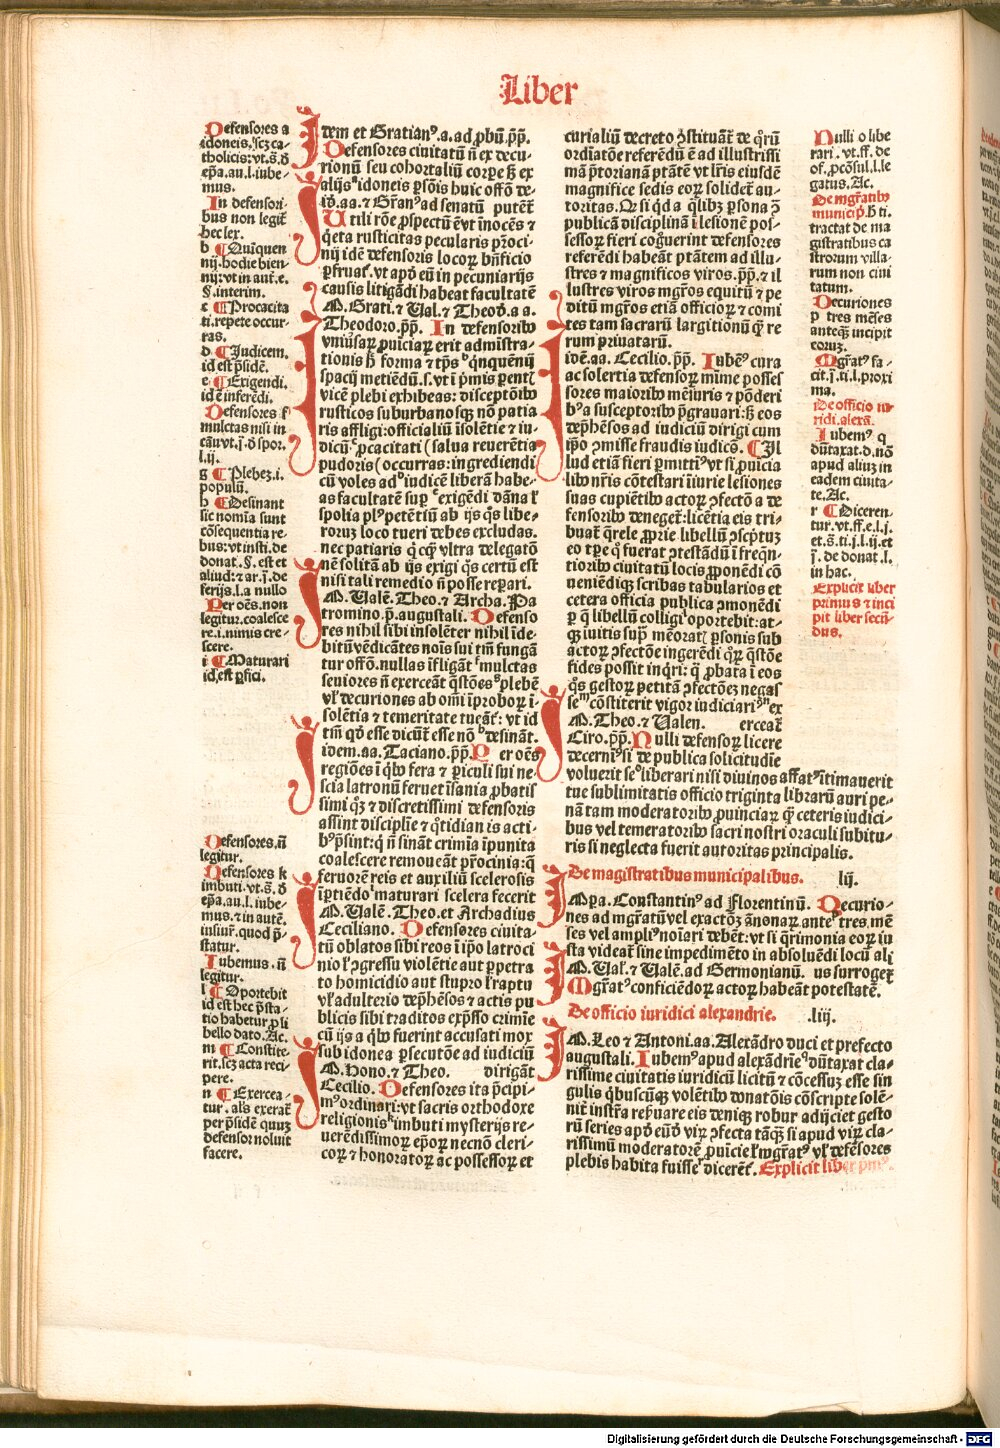 Liber
Defensores a
idoneis, scz ca-
tholicis: vt. s. d̄
ep̄a. au. l. iube-
mus.
In defensori-
bus non legit̄
hec lex.
b ¶ Quinquen
nij. hodie bien-
nij: vt in aut̄. e.
§. interim.
c ¶ Procacita
ti. repete occur-
ras.
d ¶ Judicem.
id est p̄sidē.
e ¶ Exigendi.
id ē inferēdi.
Defensores k̄
mulctas nisi in
cāu vt. j. d̄ spor.
l. ij.
g ¶ Plebez. i.
populū.
h ¶ Desinant
sic nomīa sunt
cōsequentia re-
bus: vt insti. de
donat. §. est et
aliud: ⁊ ar. j. de
ferijs. l. a nullo
Per oēs. non
legitur. coalesce
re. i. nimis cre-
scere.
i ¶ Maturari
id est ꝑfici.
Defensores. n̄
legitur.
Defensores k
imbuti. vt. s. d̄
ep̄a. au. l. iube-
mus. ⁊ in autē.
iusiur. quod p̄-
statur.
Iubemus. n̄
legitur.
l ¶ Oportebit
id est hec p̄sta-
tio habetur ꝓ li
bello dato. Ac.
m ¶ Constite-
rit. scz acta reci
pere.
n ¶ Exercea-
tur. als exerāt̄
per p̄sidē quuz
defensor noluit
facere.
Idem et Gratian⁹. a. ad ꝓbū. p̄p̄.
Defensores ciuitatū n̄ ex decu-
rionū seu cohortaliū corpe ß ex
alijs idoneis ꝑsōis huic offō de-
Id̄. aa. ⁊ Grān⁹ ad senatū putēt̄
Vtili rōe ꝓspectū ē vt inocēs ⁊
q̄eta rusticitas pecularis pr̄oci-
nij idē defensoris locoꝝ bn̄ficio
ꝑfruat̄. vt apd̄ eū in pecuniarijs
causis litigādi habeat facultatē
M. Grati. ⁊ Ual. ⁊ Theod. a a.
Theodoro. p̄p̄. In defensorib⁹
vniūsaꝝ ꝓuīciaꝝ erit admīstra-
tionis h̄ forma ⁊ tp̄s q̄nquēnij
spacij metiēdū. s. vt ī p̄mis parent̄
vicē plebi exhibeas: disceptōib⁹
rusticos suburbanosqꝫ nō patia
ris affligi: officialiū īsolētie ⁊ iu-
dicū ꝓcacitati (salua reuerētia
pudoris (occurras: ingrediendi
cū voles ad iudicē liberā habe-
as facultatē suꝑ exigēdi dāna k̄
spolia pl⁹ petētiū ab ijs q̄s libe-
roruz loco tueri debes excludas.
nec patiaris q̄ cq̄ vltra delegatō
nē solitā ab ijs exigi q̄s certū est
nisi tali remedio n̄ posse reꝑari.
M. Ualē. Theo. ⁊ Archa. Pa
tromino. p̄. augustali. Defenso
res nihil sibi insolēter nihil īde-
bitū vēdicātes nois sui tm̄ fungā
tur offō. nullas īfligāt mulctas
seuiores n̄ exerceāt q̄stōes plebē
vl̄ decuriones ab omī īproboꝝ i-
solētia ⁊ temeritate tueāt̄: vt id
tm̄ qd̄ esse dicūt̄ esse nō desināt.
idem. aa. Taciano. p̄p̄. Per oēs
regiōes ī qb⁹ fera ⁊ ꝑiculi sui ne-
scia latronū feruet īsania ꝓbatis
simi q̄ꝫ ⁊ discretissimi defensoris
assint disciplīe ⁊ q̄tidianis acti-
b⁹ p̄sint: q̄ n̄ sināt crimīa īpunita
coalescere remoueāt pr̄ocinia: q̄
feruorē reis et auxiliū scelerosis
īꝑtiēdo maturari scelera fecerit
M. Ualē. Theo. et Archadius
Ceciliano. Defensores ciuita-
tū oblatos sibi reos ī ip̄o latroci
nio k̄ ↄgressu violētie aut ꝑpetra
to homicidio aut stupro k̄ raptu
vl̄ adulterio dep̄hēsos ⁊ actis pu
blicis sibi traditos exp̄sso crimīe
cū ijs a qb⁹ fuerint accusati mox
sub idonea ꝑsecutōe ad iudiciū
M. Hono. ⁊ Theo. dirigāt
Cecilio. Defensores ita p̄cipi-
m⁹ ordinari: vt sacris orthodoxe
religionis imbuti mysterijs re-
uerēdissimoꝝ ep̄oꝝ necnō cleri-
coꝝ ⁊ honoratoꝝ ac possessoꝝ et
curialiū decreto ↄstituāt̄ de q̄rū
ordīatōe referēdū ē ad illustrissi
mā p̄torianā ptātē vt lr̄is eiusdē
magnifice sedis eoꝝ solidet̄ au-
toritas. Qsi qd̄a q̄libꝫ ꝑsona ↄ̄
publicā disciplinā ī lesionē pos-
sessoꝝ fieri cog̃uerint defensores
referēdi habeāt ptātem ad illu-
stres ⁊ magnificos viros. p̄p̄. ⁊ il
lustres viros mgr̄os equitū ⁊ pe
ditū mgr̄os etiā officioꝝ ⁊ comi
tes tam sacrarū largitionū q̄ re
rum priuatarū.
idē. aa. Cecilio. p̄p̄. Iubē⁹ cura
ac solertia defensoꝝ mīme posses
sores maiorib⁹ mēsuris ⁊ pōderi
b⁹ a susceptorib⁹ p̄grauari: ß eos
dep̄hēsos ad iudiciū dirigi cum
ip̄o ↄmisse fraudis iudicō. ¶ Il
lud etiā fieri ꝑmittī⁹ vt si ꝓuicia
lib⁹ nr̄is cōtestari iūrie lesiones
suas cupiētib⁹ actoꝝ ↄfectō a de
fensorib⁹ deneget̄: licētia eis tri-
buat̄ q̄rele ꝓprie libellū ↄscptuz
eo tpe q̄ fuerat ↄtestādū ī freqn̄-
tiorib⁹ ciuitatū locis ꝓponēdi cō
ueniēdiqꝫ scribas tabularios et
cetera officia publica ↄmonēdi
ꝑ q̄ libellū colligi oportebit: at-
qꝫ īuitis suꝑ mēorat̄ ꝑsonis sub
actoꝝ ↄfectōe ingerēdi q̄rꝫ q̄stōe
fides possit inqr̄i: q̄ ꝓbata ī eos
q̄s gestoꝝ petitā ↄfectōeꝫ negas
se cōstiterit vigor iudiciari⁹ ex
M. Theo. ⁊ Ualen. erceat̄
Ciro. p̄p̄. Nulli defensoꝝ licere
decerni⁹ si de publica solicitudīe
voluerit se liberari nisi diuinos affat⁹ ītimauerit
tue sublimitatis officio triginta librarū auri pe-
nā tam moderatorib⁹ prouinciaꝝ q̄ ceteris iudici-
bus vel temeratorib⁹ sacri nostri oraculi subitu-
ris si neglecta fuerit autoritas principalis.
De magistratibus municipalibus. lij.
Impa. Constantin⁹ ad Florentinū. Decurio-
nes ad mgr̄atū vel exactōꝫ ānonaꝝ ante tres mē
ses vel ampli⁹ noīari debēt: vt si q̄rimonia eoꝝ iu
sta videat̄ sine impedimēto in absoluēdi locū ali
M. Ual. ⁊ Ualē. ad Germonianū. us surroget̄
Mgr̄at⁹ conficiēdoꝝ actoꝝ habeāt potestatē.
De officio iuridici alexandrie. .liij.
M. Leo ⁊ Antoni. aa. Alexādro duci et prefecto
augustali. Iubem⁹ apud alexādriē dūtaxat cla-
rissime ciuitatis iuridicū licitū ⁊ cōcessuz esse sin
gulis q̄buscūqꝫ volētib⁹ donatōis cōscripte solē-
nit̄ instr̄a reꝑuare eis deniqꝫ robur adijciet gesto
rū series apd̄ eūd̄ viꝝ ↄfecta tāqꝫ si apud viꝝ cla-
rissimū moderatorē ꝓuicie k̄ mgr̄at⁹ vl̄ defēsores
plebis habita fuisse dicerēt̄. Explicit liber pm⁹.
Nulli o libe
rari. vt. ff. de
of. ꝓcōsul. l. le
gatus. Ac.
De mgr̄atib⁹
municip̄. h̄ ti.
tractat de ma
gistratibus ca
strorum villa-
rum non ciui
tatum.
Decuriones
p tres mēses
anteqꝫ incipit
eoruꝫ.
Mgr̄at⁹ fa-
cit. j. ti. l. proxi
ma.
De officio iu-
ridi. alexā.
Iubem⁹ q
dūtaxat. d. nō
apud aliuꝫ in
eadem ciuita-
te. Ac.
r ¶ Diceren-
tur. vt. ff. e. l. j.
et. s. ti. j. l. ij. et
j. de donat. l.
in hac.
Explicit liber
primus ⁊ inci
pit liber secū-
dus.
Digitalisierung gefördert durch die Deutsche Forschungsgemeinschaft - DFG